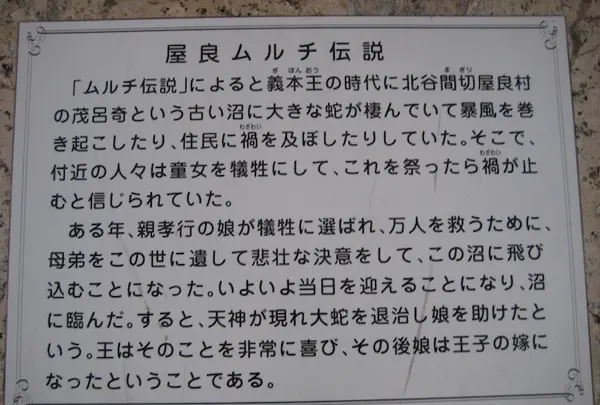 屋良ムルチ伝説
「ムルチ伝説」によると義本王の時代に北谷間切屋良村
の茂呂奇という古い沼に大きな蛇が棲んでいて暴風を巻
き起こしたり、住民に禍を及ぼしたりしていた。そこで、
付近の人々は童女を犠牲にして、これを祭ったら禍が止
むと信じられていた。
ある年、親孝行の娘が犠牲に選ばれ、万人を救うために、
母弟をこの世に遺して悲壮な決意をして、この沼に飛び
込むことになった。いよいよ当日を迎えることになり、沼
に臨んだ。すると、天神が現れ大蛇を退治し娘を助けたと
いう。王はそのことを非常に喜び、その後娘は王子の嫁に
なったということである。